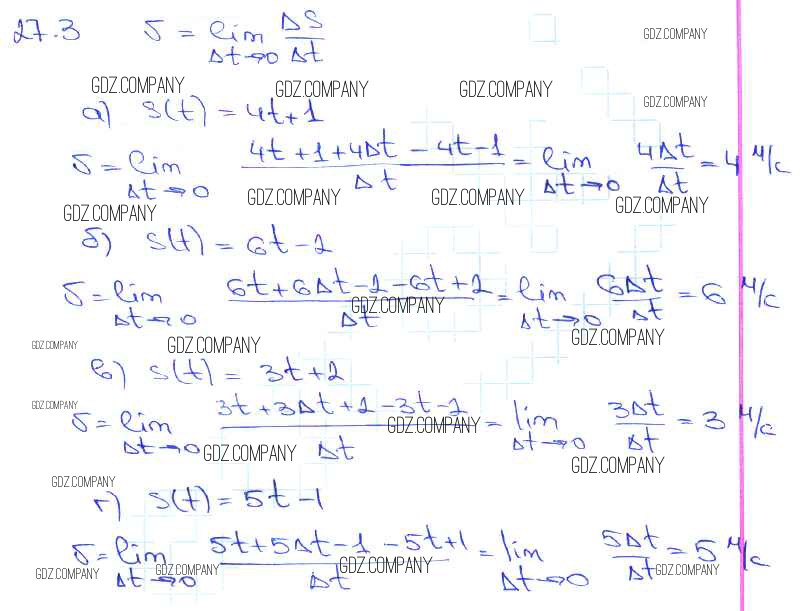 27.3 υ = lim Δt→0 ΔS/Δt
GDZ.COMPANY
GDZ.COMPANY GDZ.COMPANY GDZ.COMPANY
GDZ.COMPANY
а) S(t) = 4t+1
υ = lim Δt→0 (4t+1+4Δt-4t-1)/Δt = lim Δt→0 4Δt/Δt = 4 м/с
GDZ.COMPANY GDZ.COMPANY GDZ.COMPANY GDZ.COMPANY
б) S(t) = 6t-2
υ = lim Δt→0 (6t+6Δt-2-6t+2)/Δt = lim Δt→0 6Δt/Δt = 6 м/с
GDZ.COMPANY
GDZ.COMPANY GDZ.COMPANY GDZ.COMPANY
в) S(t) = 3t+2
GDZ.COMPANY
υ = lim Δt→0 (3t+3Δt+2-3t-2)/Δt = lim Δt→0 3Δt/Δt = 3 м/с
GDZ.COMPANY
GDZ.COMPANY GDZ.COMPANY
GDZ.COMPANY
г) S(t) = 5t-1
υ = lim Δt→0 (5t+5Δt-1-5t+1)/Δt = lim Δt→0 5Δt/Δt = 5 м/с
GDZ.COMPANY GDZ.COMPANY GDZ.COMPANY GDZ.COMPANY